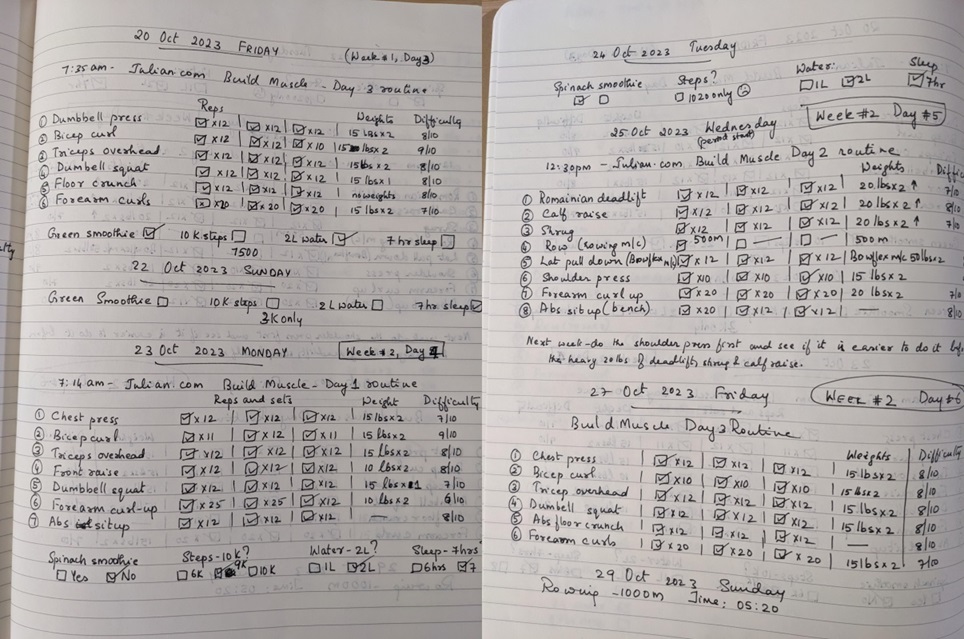 20 Oct 2023 FRIDAY
(Week #1, Day 3)
7:35am - Julian.com Build Muscle - Day 3 routine
Reps Weights Difficulty
① Dumbbell press ☑ x12 | ☑ x12 | ☑ x12 15 lbs x 2 8/10
② Bicep curl ☑ x12 | ☑ x12 | ☑ x10 15 lbs x 2 9/10
③ Triceps overhead ☑ x12 | ☑ x12 | ☑ x12 15 lbs x 2 8/10
④ Dumbell squat ☑ x12 | ☑ x12 | ☑ x12 15 lbs x 1 8/10
⑤ Floor crunch ☑ x12 | ☑ x12 | ☑ x12 no weights 8/10
⑥ Forearm curls ☒ x20 | ☑ x20 | ☑ x20 15 lbs x 2 7/10
Green smoothie ☑ 10 K steps ☐ 2L water ☑ 7 hr sleep ☐
7500
22 Oct 2023 SUNDAY
Green Smoothie ☐ 10K steps ☐ 2L water ☐ 7hr sleep ☑
3K only
23 Oct 2023 MONDAY
Week #2, Day 4
7:14 am - Julian.com Build Muscle - Day 1 routine
Reps and sets Weight Difficulty
① Chest press ☑ x12 | ☑ x12 | ☑ x12 15 lbs x 2 7/10
② Bicep curl ☑ x11 | ☑ x12 | ☑ x11 15 lbs x 2 9/10
③ Triceps overhead ☑ x12 | ☑ x12 | ☑ x12 15 lbs x 2 8/10
④ Front raise ☑ x12 | ☑ x12 | ☑ x12 10 lbs x 2 8/10
⑤ Dumbbell squat ☑ x12 | ☑ x12 | ☑ x12 15 lbs x 1 7/10
⑥ Forearm curl-up ☑ x25 | ☑ x25 | ☑ x12 10 lbs x 2 6/10
⑦ Abs situp ☑ x12 | ☑ x12 | ☑ x12 — 8/10
Spinach smoothie Steps-10k? Water-2L? Sleep-7hrs
☐ Yes ☑ No ☐ 6K ☑ 9K ☐ 10K ☐ 1L ☑ 2L ☐ 6hrs ☑ 7
24 Oct 2023 Tuesday
Spinach smoothie Steps? Water: Sleep
☑ ☐ ☐ 1020 only ☹ ☐ 1L ☑ 2L ☑ 7hr
25 Oct 2023 Wednesday
(period start)
Week #2 Day #5
12:30pm - Julian.com Build Muscle Day 2 routine
Weights
① Romainian deadlift ☑ x12 | ☑ x12 | ☑ x12 | 20 lbs x 2 ↑ 7/10
② Calf raise ☑ x12 | ☑ x12 | ☑ x12 | 20 lbs x 2 ↑ 8/10
③ Shrug ☑ x12 | ☑ x12 | ☑ x12 | 20 lbs x 2 ↑ 7/10
④ Row (rowing m/c) ☑ 500m | ☐ — | ☐ — | 500 m
⑤ Lat pull down (Bowflex m/c) ☑ x12 | ☑ x12 | ☑ x12 | Bowflex m/c 50lbs x 2
⑥ Shoulder press ☑ x10 | ☑ x10 | ☑ x10 | 15 lbs x 2
⑦ Forearm curl up ☑ x20 | ☑ x20 | ☑ x20 | 20 lbs x 2 7/10
⑧ Abs sit up (bench) ☑ x20 | ☑ x12 | ☑ x12 | — 8/10
Next week - do the shoulder press first and see if it is easier to do it
the heavy 20 lbs of deadlifts, shrug & calf raise.
27 Oct 2023 Friday
WEEK #2 Day #6
Build Muscle Day 3 Routine
Weights Difficulty
① Chest press ☑ x12 | ☑ x12 | ☑ x12 | 15 lbs x 2 8/10
② Bicep curl ☑ x10 | ☑ x10 | ☑ x10 | 15 lbs x 2 8/10
③ Tricep overhead ☑ x12 | ☑ x12 | ☑ x12 | 15 lbs x 2 8/10
④ Dumbell squat ☑ x12 | ☑ x12 | ☑ x12 | 15 lbs x 2 8/10
⑤ Abs floor crunch ☑ x12 | ☑ x12 | ☑ x12 | — 8/10
⑥ Forearm curls ☑ x20 | ☑ x20 | ☑ x20 | 15 lbs x 2 7/10
29 Oct 2023 Sunday
Rowing - 1000m Time: 05:20